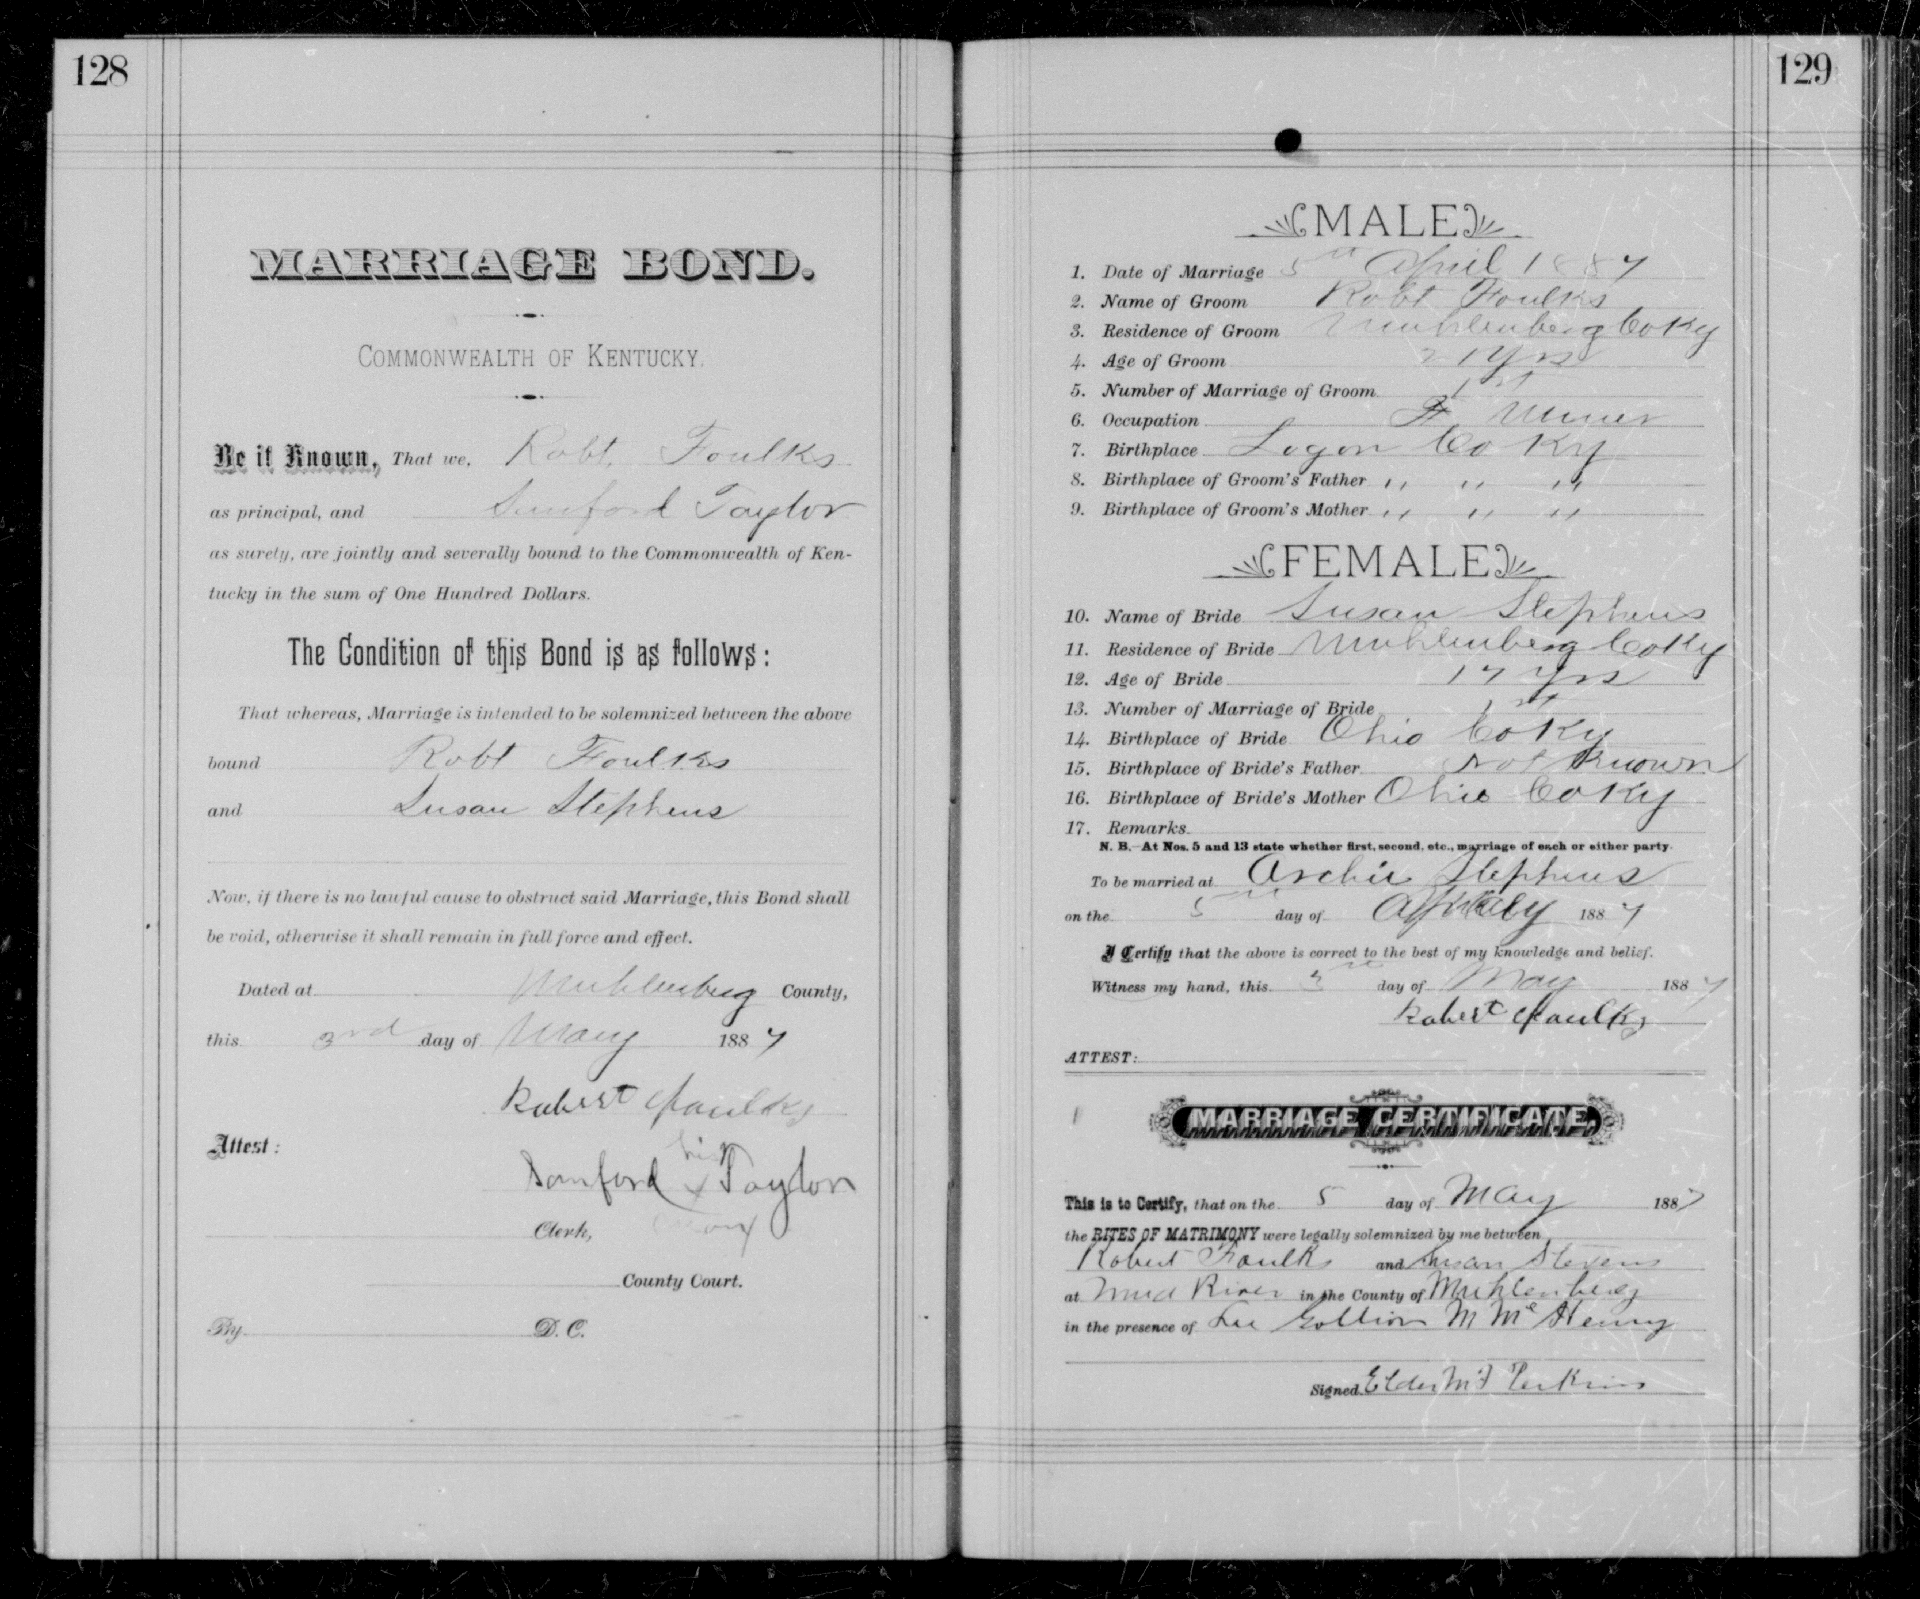 128
MARRIAGE BOND.
COMMONWEALTH OF KENTUCKY.
Be it Known, That we, Robt. Foulks
as principal, and Sanford Taylor
as surety, are jointly and severally bound to the Commonwealth of Ken-
tucky in the sum of One Hundred Dollars.
The Condition of this Bond is as follows:
That whereas, Marriage is intended to be solemnized between the above
bound Robt Foulks
and Susan Stephens
Now, if there is no lawful cause to obstruct said Marriage, this Bond shall
be void, otherwise it shall remain in full force and effect.
Dated at Muhlenberg County,
this 3rd day of May 1887
Robert Faulks
Attest:
his
Sanford x Taylor
Clerk, mark
County Court.
By D. C.
129
MALE
1. Date of Marriage 5th April 1887
2. Name of Groom Robt Foulks
3. Residence of Groom Muhlenberg Co Ky
4. Age of Groom 21 Yrs
5. Number of Marriage of Groom 1st
6. Occupation Miner
7. Birthplace Logan Co Ky
8. Birthplace of Groom's Father " " "
9. Birthplace of Groom's Mother " " "
FEMALE
10. Name of Bride Susan Stephens
11. Residence of Bride Muhlenberg Co Ky
12. Age of Bride 17 Yrs
13. Number of Marriage of Bride 1st
14. Birthplace of Bride Ohio Co Ky
15. Birthplace of Bride's Father Not Known
16. Birthplace of Bride's Mother Ohio Co Ky
17. Remarks
N. B.—At Nos. 5 and 13 state whether first, second, etc., marriage of each or either party.
To be married at Archie Stephens
on the 5th day of 1887
I Certify that the above is correct to the best of my knowledge and belief.
Witness my hand, this 3rd day of May 1887
Robert Faulks
ATTEST:
MARRIAGE CERTIFICATE.
This is to Certify, that on the 5 day of May 1887
the RITES OF MATRIMONY were legally solemnized by me between
Robert Faulks and Susan Stevens
at Mud River in the County of Muhlenberg
in the presence of Lee Gollion M McHenry
Signed. Elder M F Perkins